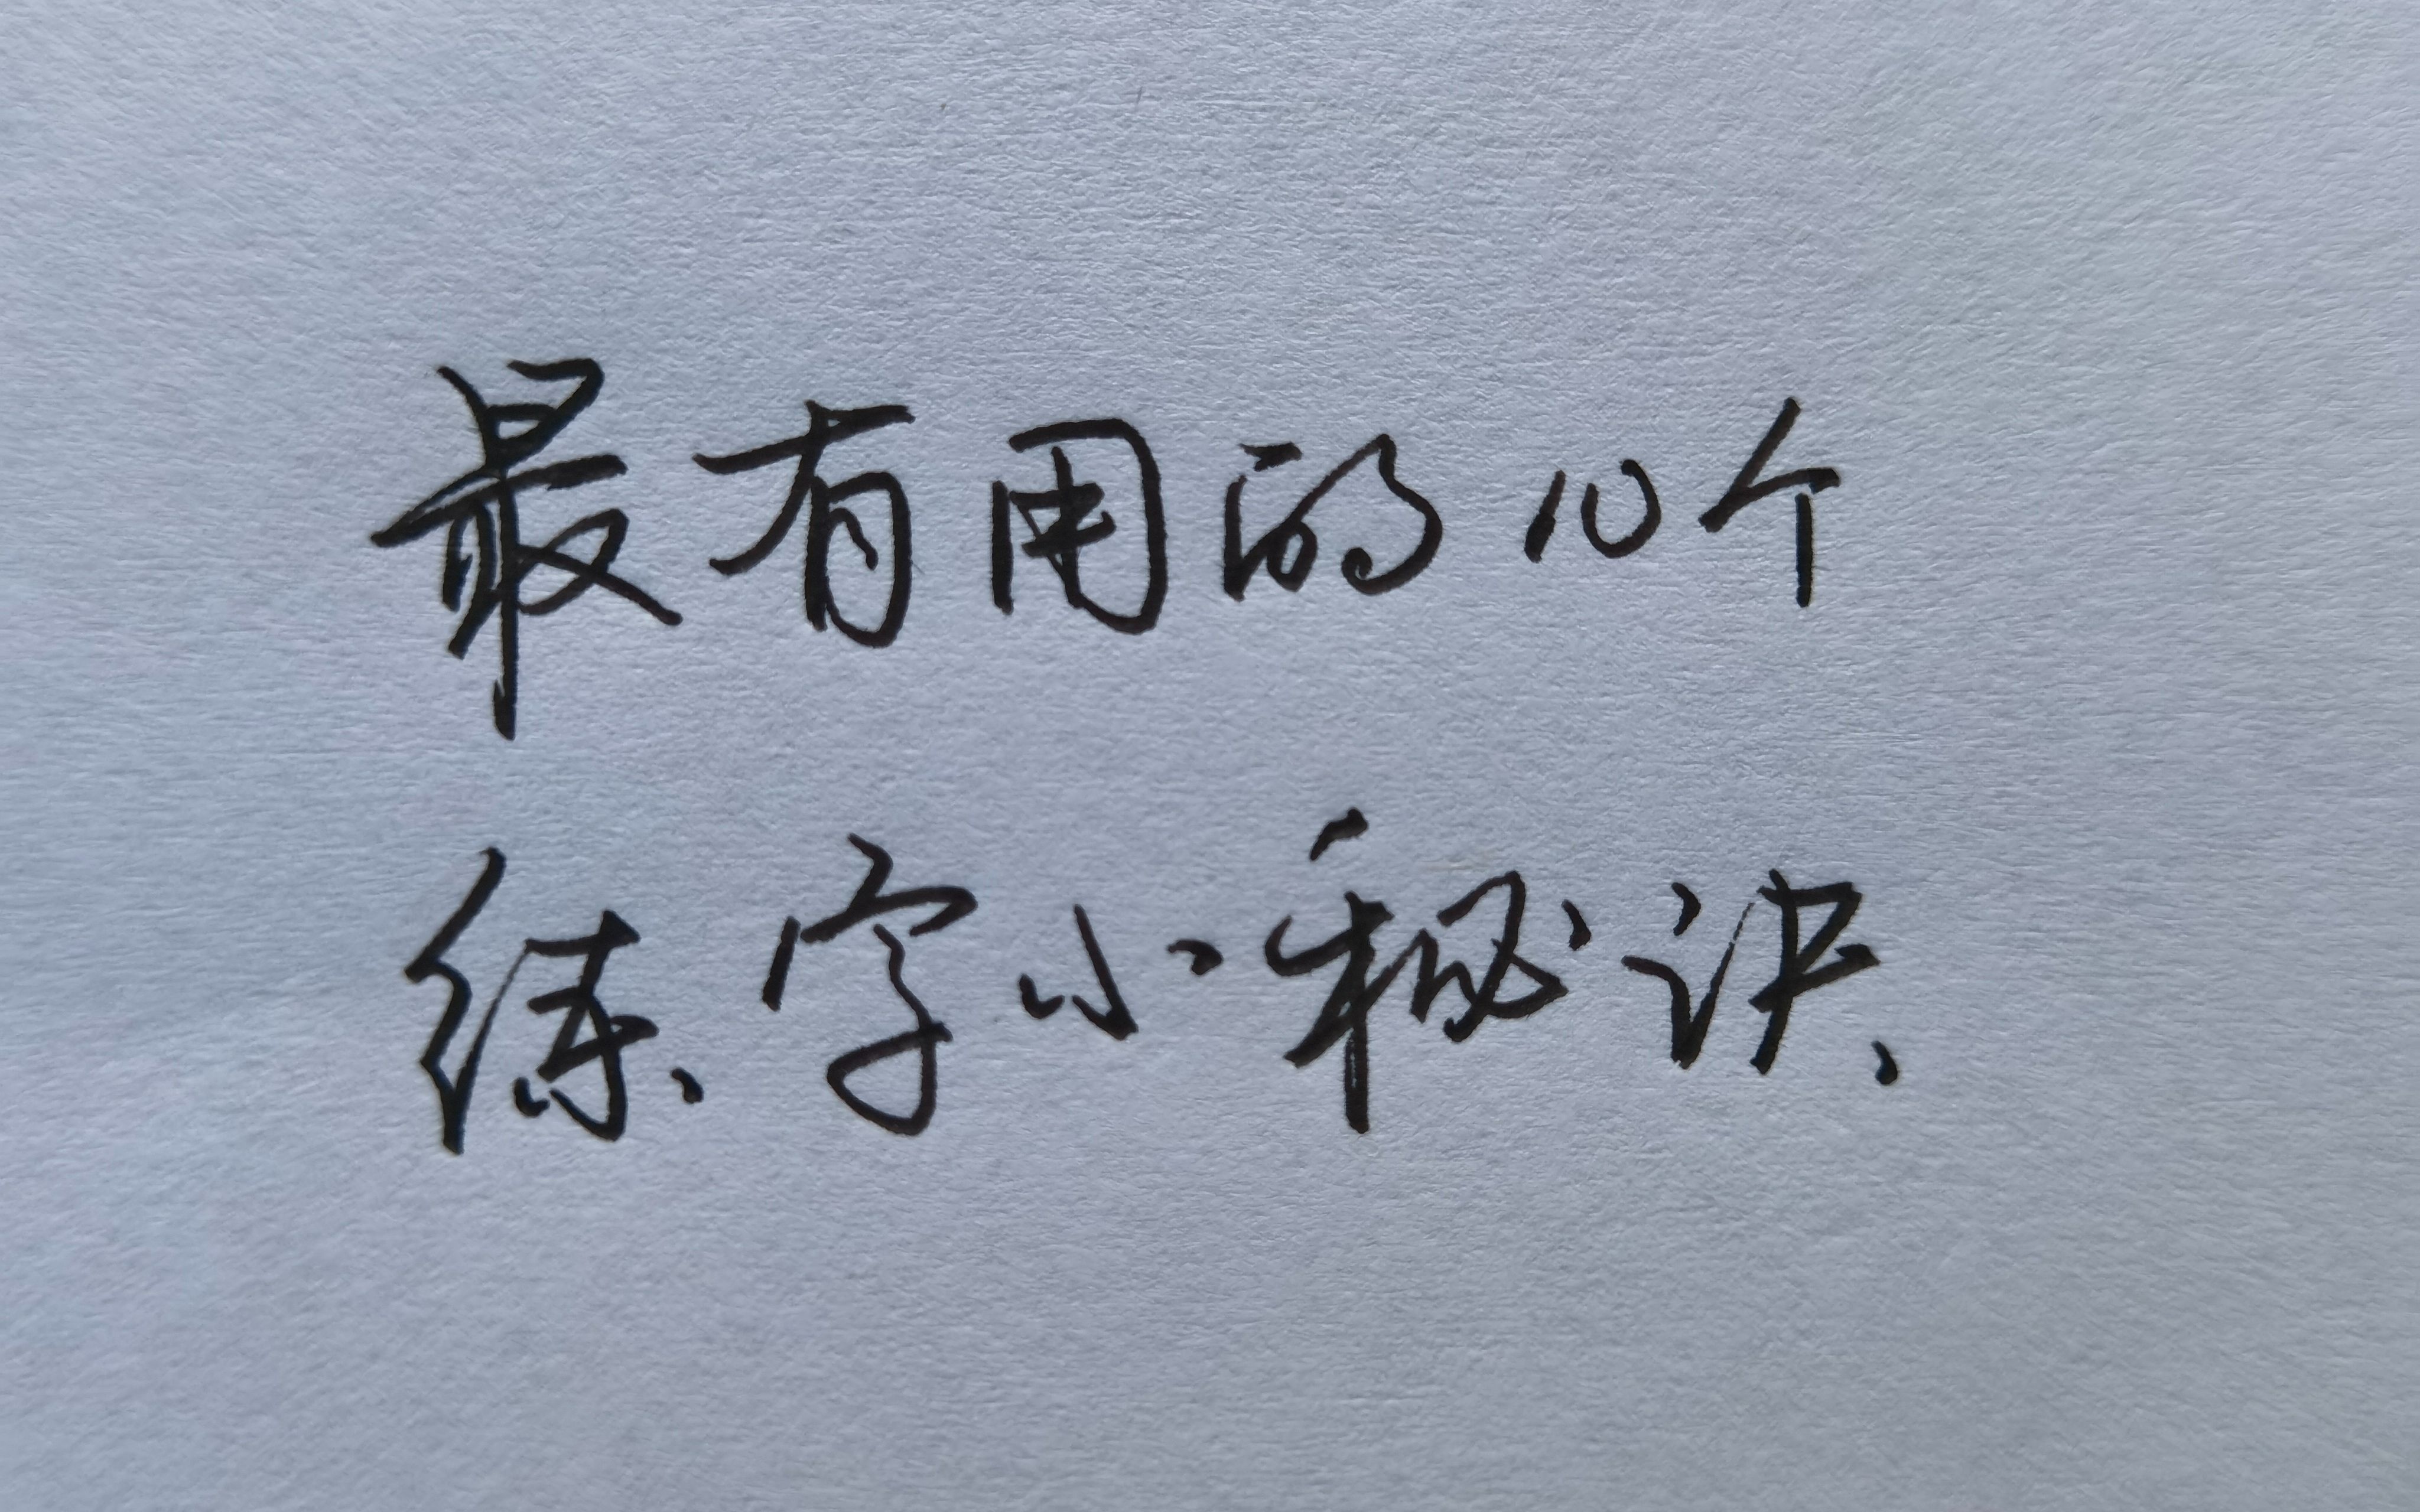 最有用的10个
练字小秘诀